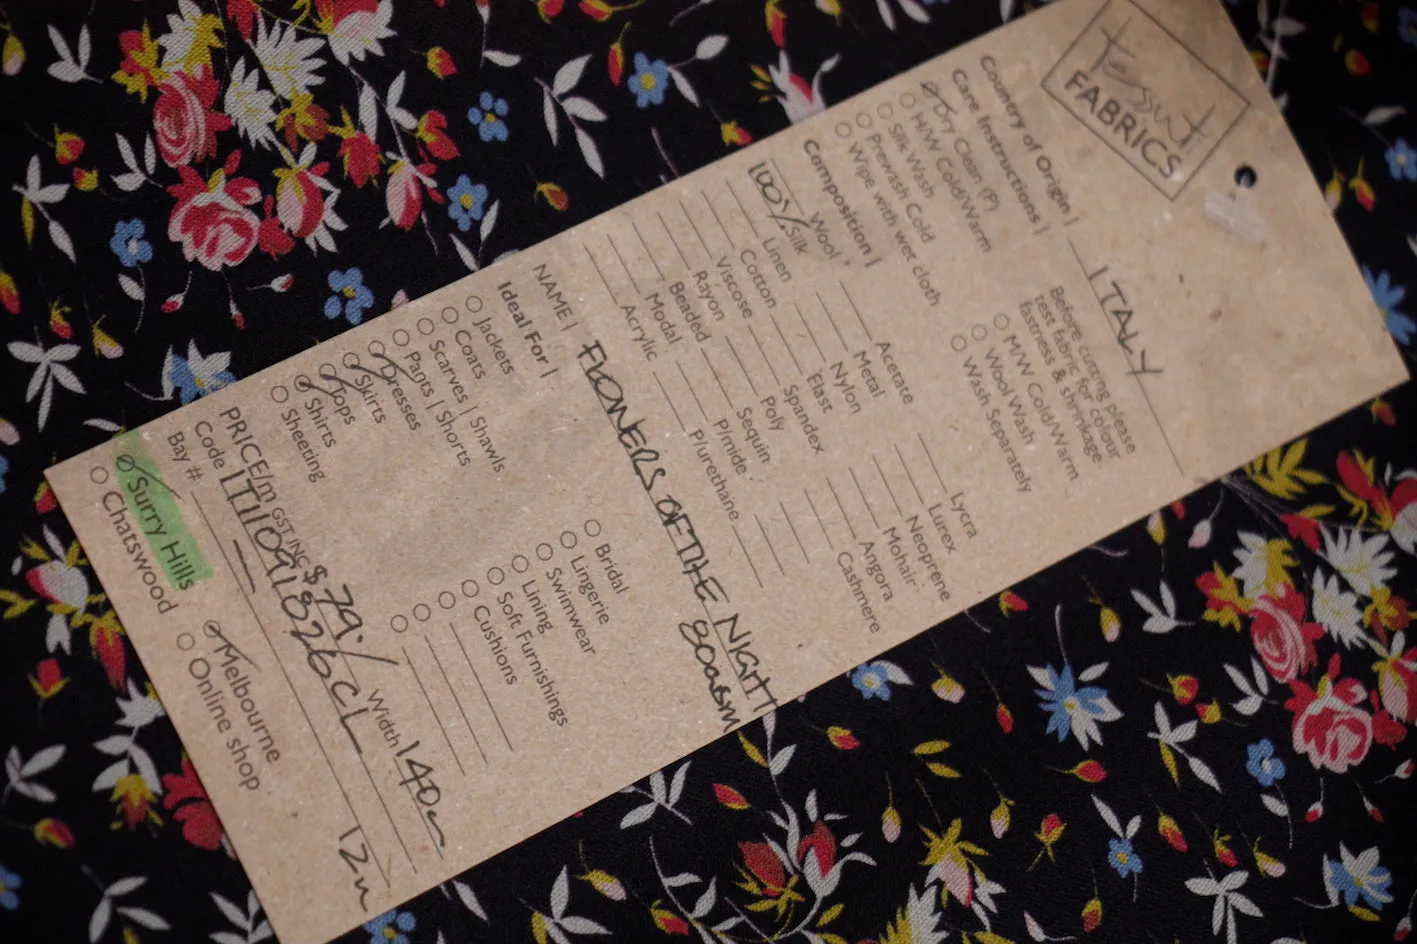 tessuti
FABRICS
Country of Origin | ITALY
Care Instructions |
Dry Clean (P)
M/W Cold/Warm
Silk Wash
Prewash Cold
Wipe with wet cloth
Before cutting please
test fabric for colour
fastness & shrinkage
M/W Cold/Warm
Wool Wash
Wash Separately
Composition |
Wool
100% Silk
Linen
Cotton
Viscose
Rayon
Beaded
Modal
Acrylic
Acetate
Metal
Nylon
Elast
Spandex
Poly
Sequin
P/mide
P/urethane
Lycra
Lurex
Neoprene
Mohair
Angora
Cashmere
NAME | FLOWERS OF THE NIGHT
Ideal For |
Jackets
Coats
Scarves | Shawls
Pants | Shorts
Dresses
Skirts
Tops
Shirts
Sheeting
Bridal
Lingerie
Swimwear
Lining
Soft Furnishings
Cushions
PRICE/m GST INC $79./ Width 140
Code
Bay #
Surry Hills
Chatswood
Melbourne
Online shop